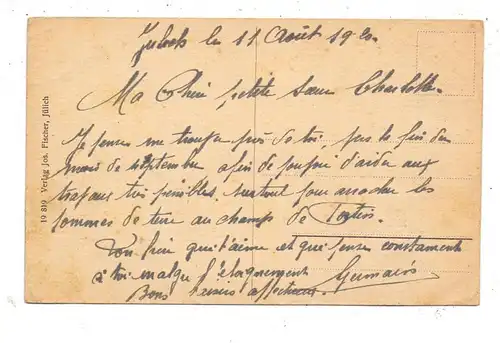 le 11 Août 1920
Ma Chère petite Sœur Charlotte
Je pense me trouver près de toi, pas la fin du
mois de septembre afin de pouvoir d'aider aux
travaux trop pénibles, surtout pour arracher les
pommes de terre au champs de
Ton frère qui t'aime et qui pense constamment
à toi malgré l'éloignement
Bons baisers affectueux Germain
19 819 Verlag Jos. Fischer, Jülich